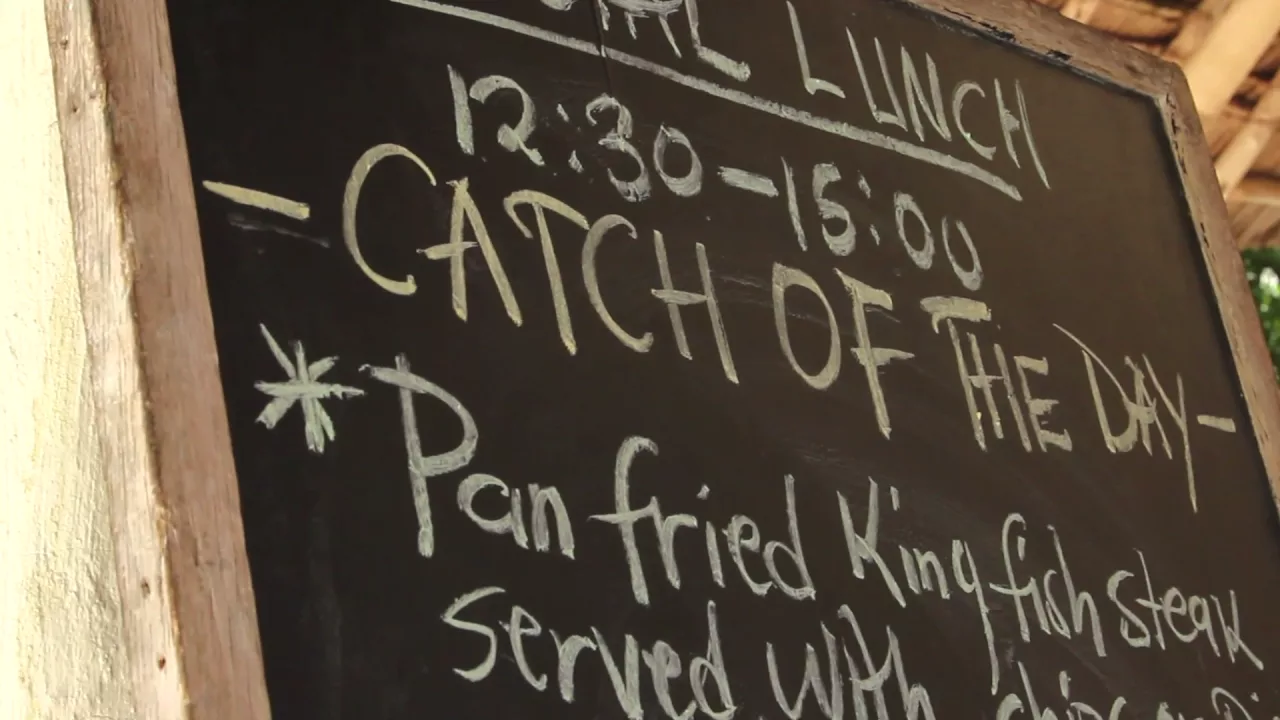 LUNCH
12:30-15:00
- CATCH OF THE DAY -
* Pan fried King fish steak
served with